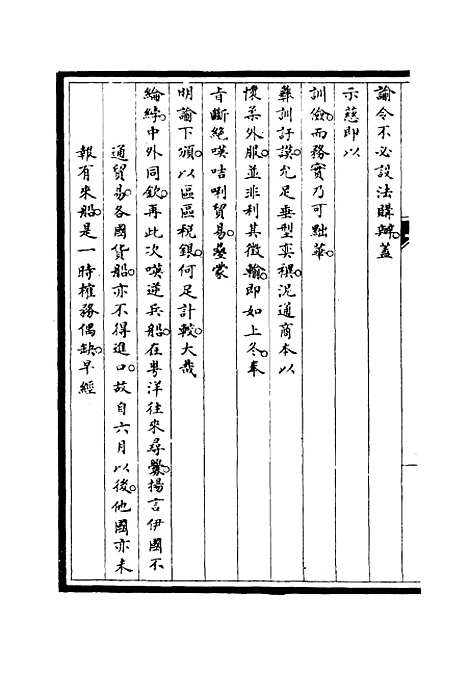 諭令不必設法購辦。蓋
示慈即以
訓儉。而務實乃可黜華。
彝訓訏謨。允足垂型奕禩。況通商本以
懷柔外服。並非利其徵輸。即如上冬。奉
旨斷絕嘆咭唎貿易。蒙
明諭下頒。以區區稅銀。何足計較。大哉
綸綍。中外同欽。再此次嘆逆兵船。在粵洋往來尋釁。揚言伊國不
通貿易。各國貨船。亦不得進口。故自六月以後。他國亦未
報有來船。是一時榷務偶缺。早經